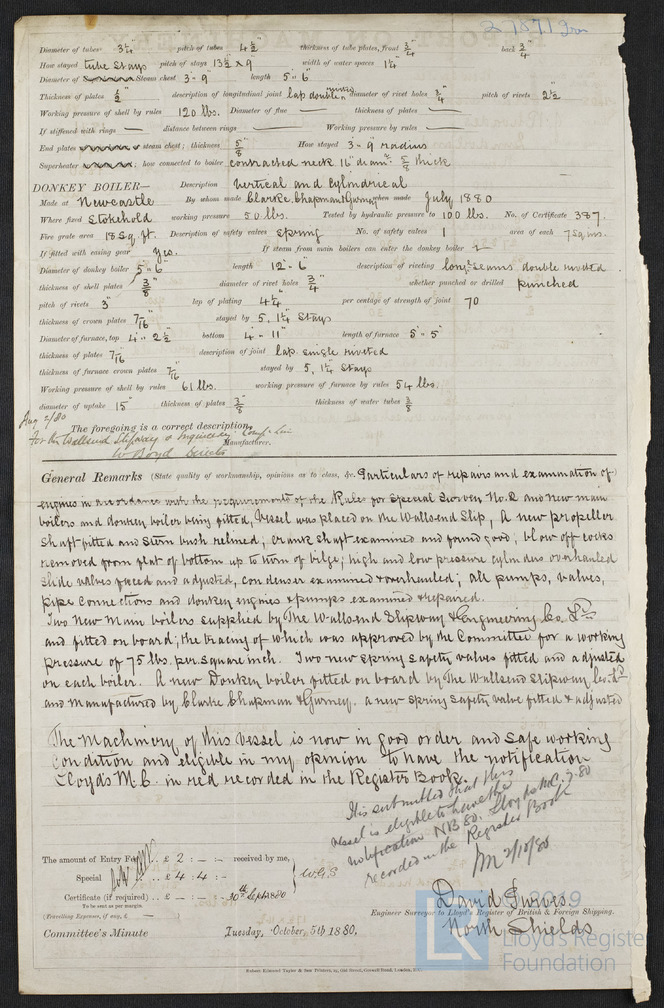 27871 Iron
Diameter of tubes 3 1/4" pitch of tubes 4 1/2" thickness of tube plates, front 3/4" back 3/4"
How stayed tube stays pitch of stays 13 1/2 x 9" width of water spaces 1 1/4"
Diameter of Steam chest 3-9" length 5"-6"
Thickness of plates 1/2" description of longitudinal joint lap double riveted diameter of rivet holes 3/4" pitch of rivets 2 1/2"
Working pressure of shell by rules 120 lbs. Diameter of flue — thickness of plates —
If stiffened with rings — distance between rings — Working pressure by rules —
End plates of steam chest; thickness 5/8" How stayed 3-9" radius
Superheater ; how connected to boiler contracted neck 16" diamr. 5/8 thick
DONKEY BOILER— Description Vertical and Cylindrical
Made at Newcastle By whom made Clarke, Chapman & Gurney when made July 1880
Where fixed Stokehold working pressure 50 lbs. Tested by hydraulic pressure to 100 lbs. No. of Certificate 387.
Fire grate area 18 Sq. ft. Description of safety valves Spring No. of safety valves 1 area of each 7 Sq. ins.
If fitted with easing gear Yes. If steam from main boilers can enter the donkey boiler
Diameter of donkey boiler 5"-6 length 12"-6" description of riveting long. Seams double riveted
thickness of shell plates 3/8" diameter of rivet holes 3/4" whether punched or drilled punched
pitch of rivets 3" lap of plating 4 1/4" per centage of strength of joint 70
thickness of crown plates 7/16" stayed by 5, 1 1/4" Stays
Diameter of furnace, top 4'-2 1/2" bottom 4-11" length of furnace 5"-5"
thickness of plates 7/16" description of joint lap single riveted
thickness of furnace crown plates 7/16" stayed by 5, 1 1/4 Stays
Working pressure of shell by rules 61 lbs. working pressure of furnace by rules 54 lbs.
diameter of uptake 15" thickness of plates 3/8" thickness of water tubes 3/8
Aug 2/80
The foregoing is a correct description,
For the Wallsend Slipway & Engineering Comp. Lim
W Boyd Director Manufacturer.
General Remarks (State quality of workmanship, opinions as to class, &c. Particulars of repairs and examination of
engines in accordance with the requirements of the Rules for Special Survey No. 2 and new main
boilers and donkey boiler being fitted, Vessel was placed on the Wallsend Slip, A new propeller
Shaft fitted and Stern bush relined, crank shaft examined and found good, blow off cocks
removed from flat of bottom up to turn of bilge; high and low pressure cylinders overhauled
slide valves faced and adjusted, condenser examined & overhauled; all pumps, valves,
pipe connections and donkey engines & pumps examined & repaired.
Two New Main boilers supplied by The Wallsend Slipway & Engineering Co. Ld.
and fitted on board; the tracing of which was approved by the Committee for a working
pressure of 75 lbs. per Square inch. Two new Spring Safety valves fitted and adjusted
on each boiler. A new Donkey boiler fitted on board by The Wallsend Slipway Co. Ld
and manufactured by Clarke Chapman & Gurney. a new Spring Safety valve fitted & adjusted
The Machinery of this Vessel is now in good order and safe working
condition and eligible in my opinion to have the notification
Lloyds M.C. in red recorded in the Register Book.
It is submitted that this
Vessel is eligible to have the
notification NB 80. Lloyds M.C. 9.80
recorded in the Register Book
2/10/80
The amount of Entry Fee .. £ 2 : – : – received by me,
Special .. £ 4 : 4 : – W.G.S
Certificate (if required) .. £ – : – : – 30th Sept 1880
To be sent as per margin.
(Travelling Expenses, if any, £ — )
David Purves.
Engineer Surveyor to Lloyd's Register of British & Foreign Shipping.
North Shields
Committee's Minute Tuesday, October 5th 1880.
LR Lloyd's Register
Foundation
Robert Edmund Taylor & Son Printers, 19, Old Street, Goswell Road, London, E.C.